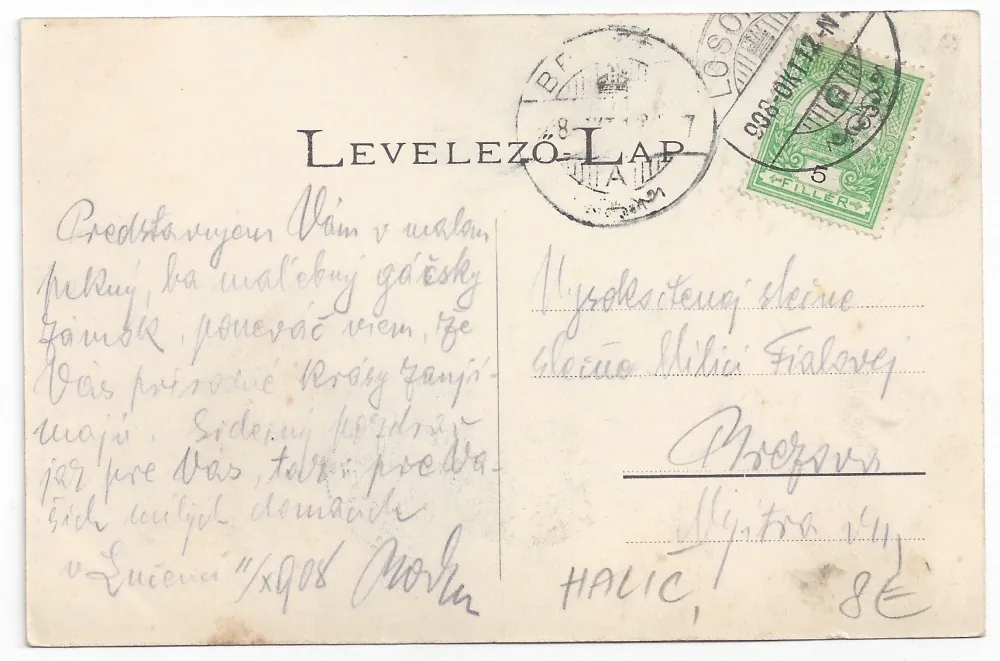 LEVELEZŐ-LAP
LOSO
908 OKT 12 N
BR
A
5
FILLER
Predstavujem Vám v malom
pekný, ba malebný gáčsky
zámok, ponevác viem, že
Vás prírodné krásy zanjí-
majú. Srdečný pozdrav
jak pre Vás, tak i pre Va-
šich milých domácich
v Lučenci 11/X 908
Vysokoctenej slečne
slečne Milici Fialovej
Brezova
Nyitra vm,
HALIC,
8€